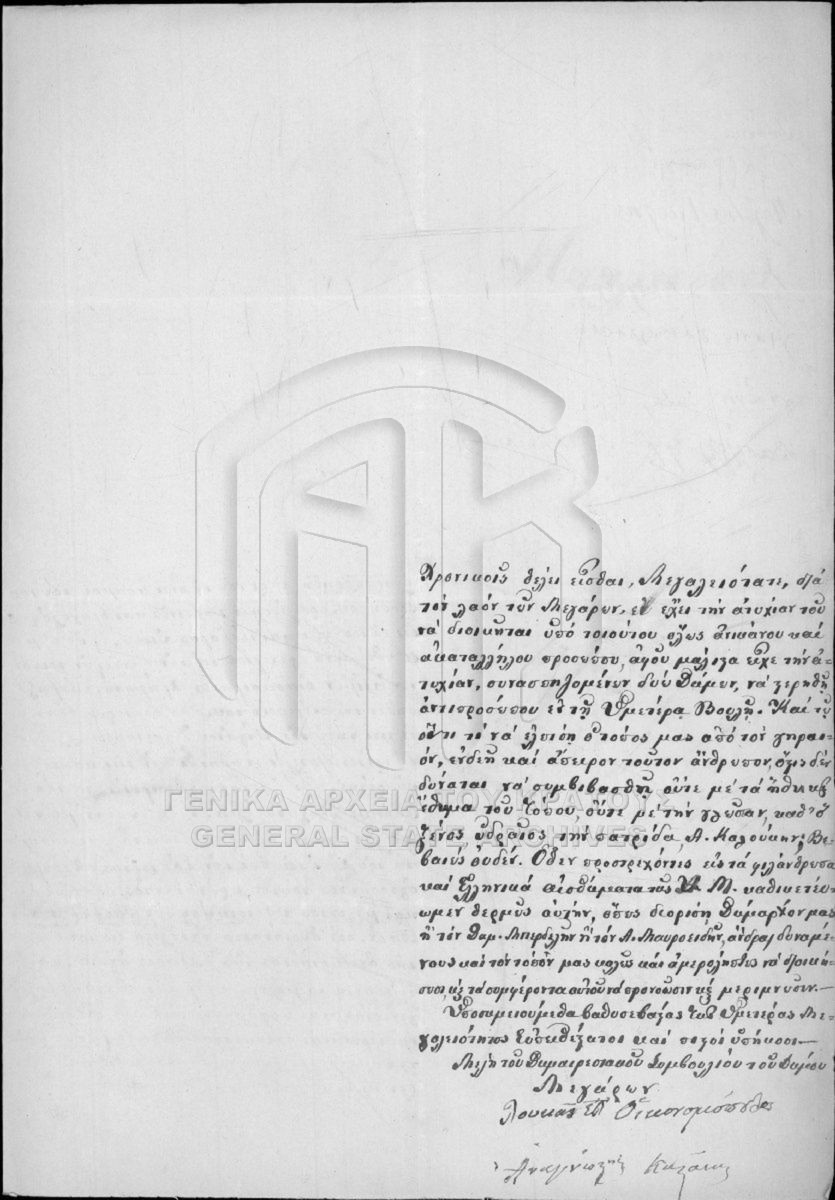 Χρονικοῖς θέλει εἶσθαι, Μεγαλειότατε, διὰ
τὸν λαὸν τῶν Μεγάρων, ἐὰν ἔχει τὴν ἀτυχίαν τοῦ
νὰ διοικῆται ὑπὸ τοιούτου ὅλως ἀπιθάνου καὶ
ἀκαταλλήλου προσώπου, ἀφοῦ μάλιστα εἶχε τὴν ἀ-
τυχίαν, συνασπιζομένων δύω Δήμων, νὰ στερηθῇ
ἀντιπροσώπου ἐν τῇ Ὑμετέρᾳ Βουλῇ. Καὶ τῷ
ὄντι τί νὰ ἐλπίσῃ ὁ τόπος μας ἀπὸ τὸν γηραι-
όν, ἐνδεῆ καὶ ἄπειρον τοῦτον ἄνθρωπον, ὅστις δὲν
δύναται νὰ συμβιβασθῇ οὔτε μὲ τὰ ἤθη καὶ
ἔθιμα τοῦ τόπου, οὔτε μὲ τὴν γλῶσσαν, καθ' ὃ
ξένος ὑδραῖος τὴν πατρίδα, Α. Καλούδην; Βε-
βαίως οὐδέν. Ὅθεν προστρέχοντες εἰς τὰ φιλάνθρωπα
καὶ Ἑλληνικὰ αἰσθήματα τῆς Υ. Μ. καθικετεύ-
ωμεν θερμῶς αὐτήν, ὅπως διορίσῃ Δήμαρχόν μας
ἢ τὸν Δημ. Μπερδελῆν ἢ τὸν Α. Μαυροειδῆν, ἄνδρας δυναμέ-
νους καὶ τὸν τόπον μας καλῶς καὶ ἀμερολήπτως νὰ διοική-
σωσι, καὶ τὰ συμφέροντα αὐτοῦ νὰ προνοῶσιν καὶ μεριμνῶσιν.—
Ὑποσημειούμεθα βαθυσεβάστως τῆς Ὑμετέρας Με-
γαλειότητος Εὐπειθέστατοι καὶ πιστοὶ ὑπήκοοι—
Μέλη τοῦ Δημαιρεσιακοῦ Συμβουλίου τοῦ Δήμου
Μεγάρων
Λουκᾶς Οἰκονομόπουλος
Ἀναγνώστης
ΓΕΝΙΚΑ ΑΡΧΕΙΑ ΤΟΥ ΚΡΑΤΟΥΣ
GENERAL STATE ARCHIVES